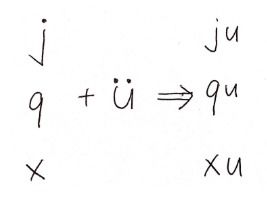 j ju
q + ü ⇒ qu
x xu